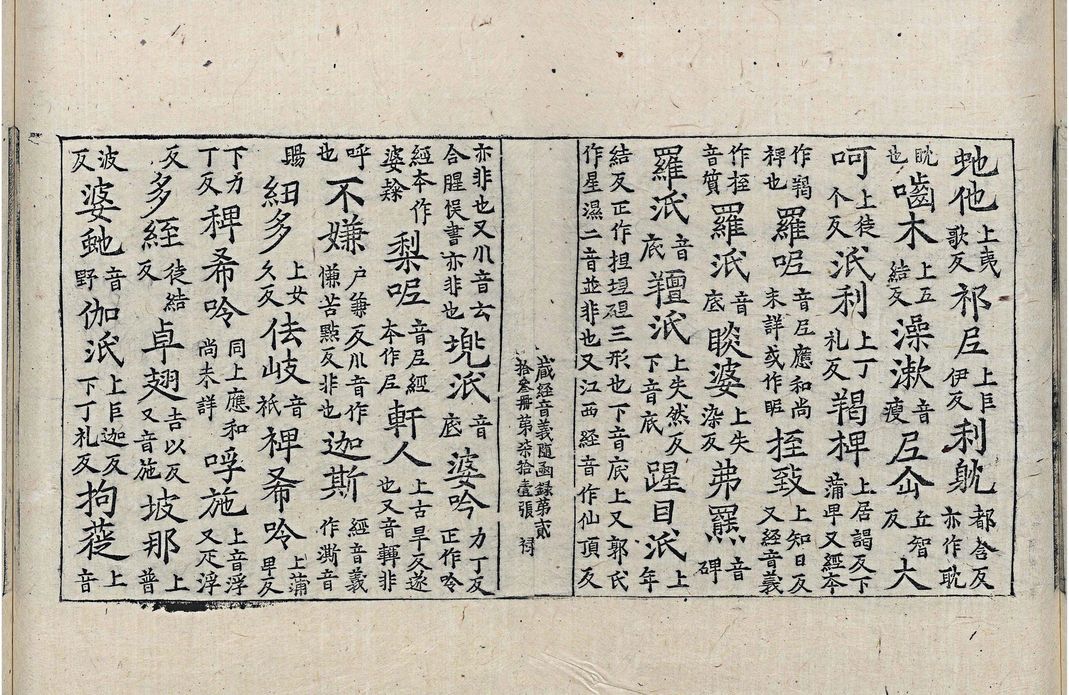 虵他上夷歌反祁𡰱上巨伊反利躭都含反亦作耽
眈也嚙木上五結反澡漱音瘦𡰱仚丘智反大
呵上徒个反泜利上丁札反羯椑上居謁反下蒲甲又經本
作羯椑也羅呢音𡰱應和尚未詳或作昵挃致上知日反又經音義
作桎音質羅泜音底睒婆上失染反弗羆音碑
羅泜音底羶泜上失然反下音底踁目泜上年
結反正作担埕三形也下音底上又郭氏作星濕二音並非也又江西経音作仙頂反
藏経音義隨函録第貳拾叁冊第柒拾壹張 祠
亦非也又川音云合腥悮書亦非也泜音底婆吟力丁反正作呤
經本作婆䅉梨呢音𡰱經本作𡰱軒人上古旱反遂也又音轉非
呼也不嫌户兼反川音作慊苦點反非也迦斯經音義作澌音
賜紐多上女久反佉岐音祇裨希呤上蒲卑反
下力丁反稗希呤同上應和尚未詳呼施上音浮又疋浮
反多絰徒結反卓翅吉以反又音施坡那上普
波反婆虵音野伽泜上巨迦反下丁札反拘蓰上音